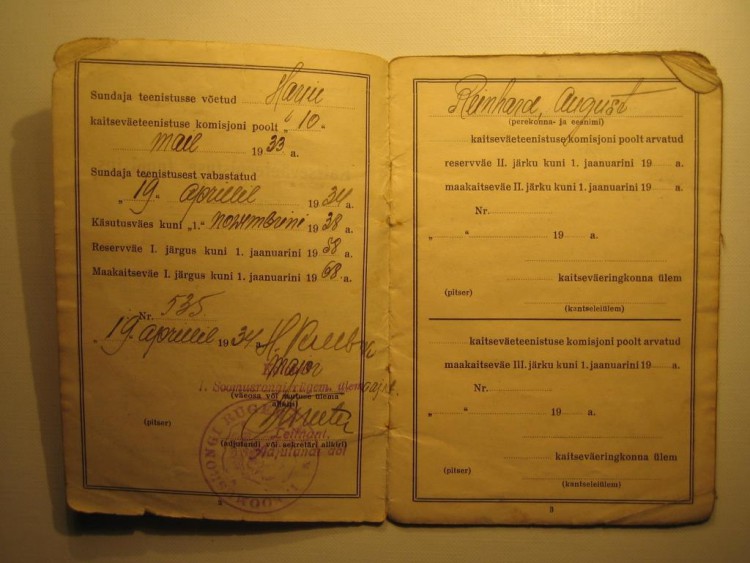 Sundaja teenistusse võetud Harju
kaitseväeteenistuse komisjoni poolt „10"
mail 1933 a.
Sundaja teenistusest vabastatud
„19" aprillil 1934 a.
Käsutusväes kuni „1." novembrini 1938 a.
Reservväe I. järgus kuni 1. jaanuarini 1958 a.
Maakaitseväe I. järgus kuni 1. jaanuarini 1968 a.
Nr. 535
„19. aprillil 1934 a.
major
1. Soomusrongi rügem. ülem
(väeosa või asutuse ülema
allkiri)
(pitser)
Leitnant,
(adjutandi või sekretäri allkiri)
Adjutandi abi
Reinhard, August
(perekonna- ja eesnimi)
kaitseväeteenistuse komisjoni poolt arvatud
reservväe II. järku kuni 1. jaanuarini 19 a.
maakaitseväe II. järku kuni 1. jaanuarini 19 a.
Nr.
„ " 19 a.
kaitseväeringkonna ülem
(pitser)
(kantseleiülem)
kaitseväeteenistuse komisjoni poolt arvatud
maakaitseväe III. järku kuni 1. jaanuarini 19 a.
Nr.
„ " 19 a.
kaitseväeringkonna ülem
(pitser)
(kantseleiülem)